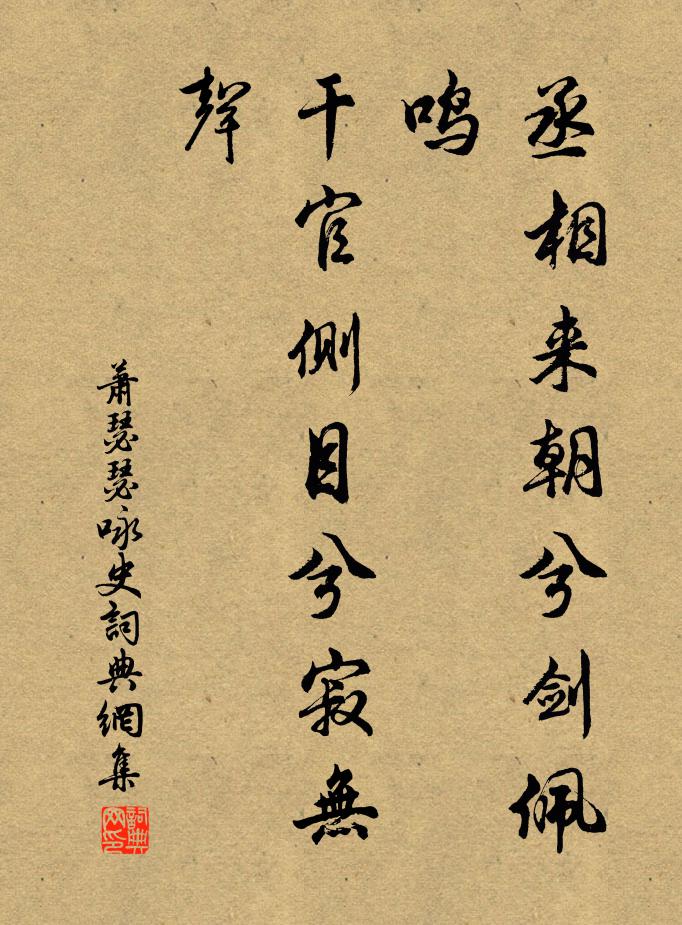 丞相来朝兮剑佩
鸣
千官侧目兮寂無
聲
萧瑟瑟咏史詞典網集
詞典
网印